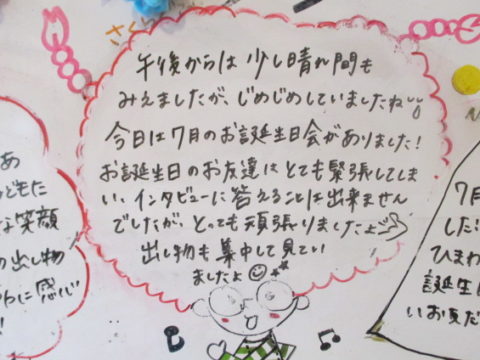 午後からは少し晴れ間も
みえましたが、じめじめしていましたね
今日は7月のお誕生日会がありました!
お誕生日のお友達はとても緊張してしま
い、インタビューに答えることは出来ません
でしたが、とっても頑張りましたよ
出し物も集中して見てい
ましたよ
あ
どもた
な笑顔
の出し物
に感じ
!
7月
した
ひまわ
誕生
いお友だ